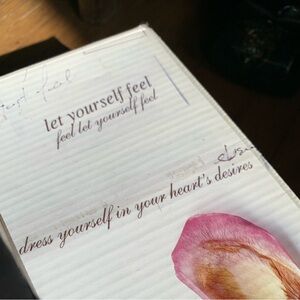 let yourself feel
feel let yourself feel
dress yourself in your heart's desires